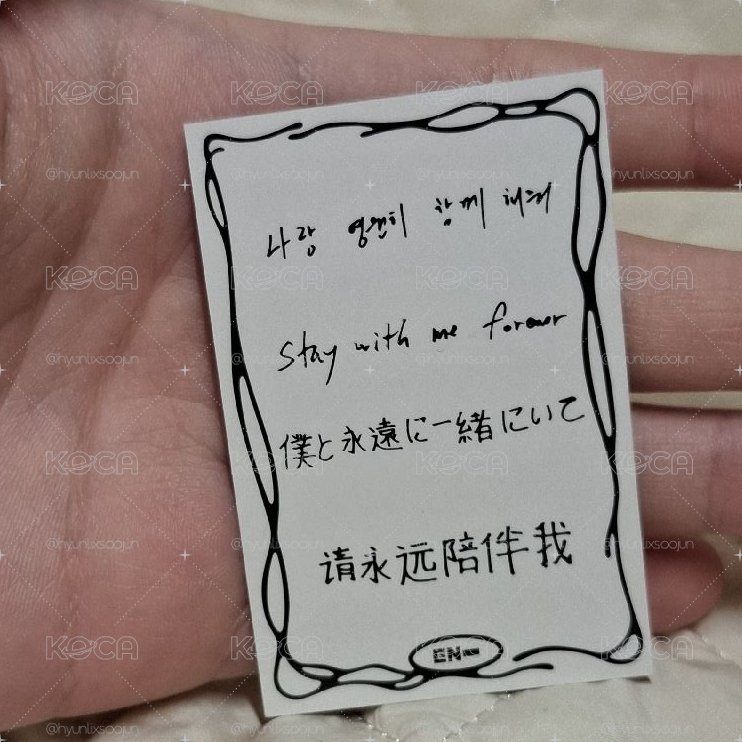 나랑 영원히 함께 해줘
Stay with me forever
僕と永遠に一緒にいて
请永远陪伴我
EN-
KOCA
@hyunlixsoojun